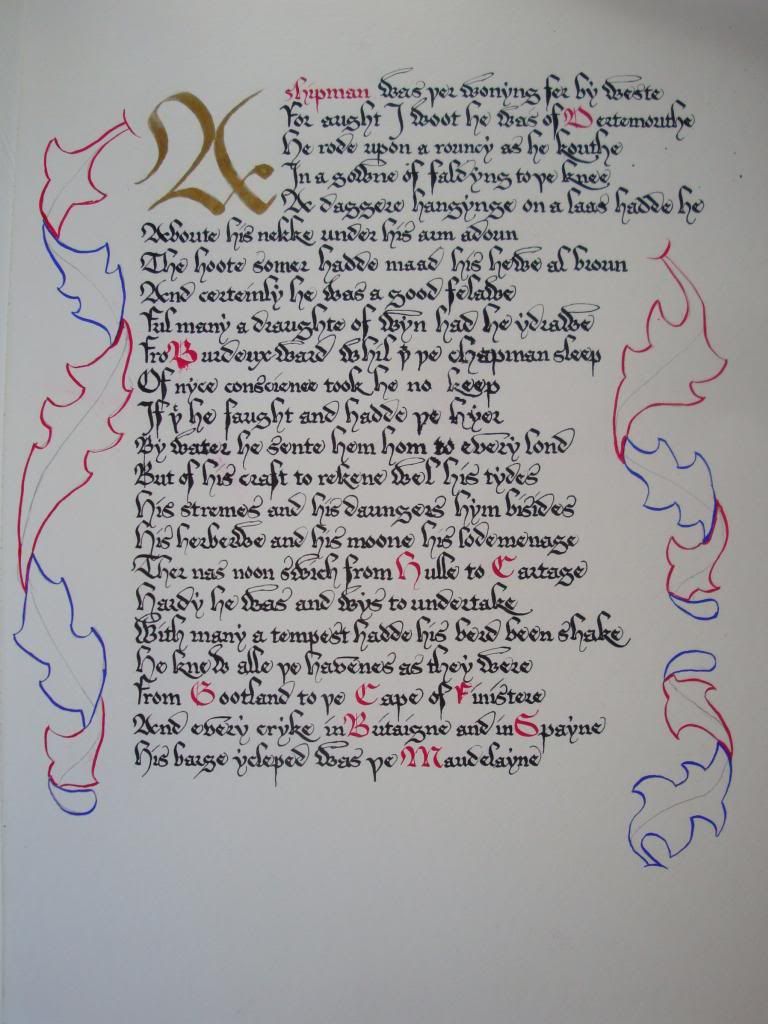 A shipman was þer wonyng fer by weste
For aught I woot he was of Dertemouthe
He rode upon a rouncy as he kouthe
In a gowne of faldyng to þe knee
A daggere hangynge on a laas hadde he
Aboute his nekke under his arm adoun
The hoote somer hadde maad his hewe al broun
And certeinly he was a good felawe
Ful many a draughte of wyn had he ydrawe
Fro Burdeux ward whil þ þe chapman sleep
Of nyce conscience took he no keep
If yͭ he faught and hadde þe hyer
By water he sente hem hom to every lond
But of his craft to rekene wel his tydes
His stremes and his daungers hym bisides
His herberwe and his moone his lodemenage
Ther nas noon swich from Hulle to Cartage
Hardy he was and wys to undertake
With many a tempest hadde his berd been shake
He knew alle þe havenes as they were
From Gootland to þe Cape of Finistere
And every cryke in Britaigne and in Spayne
His barge ycleped was þe Maudelayne